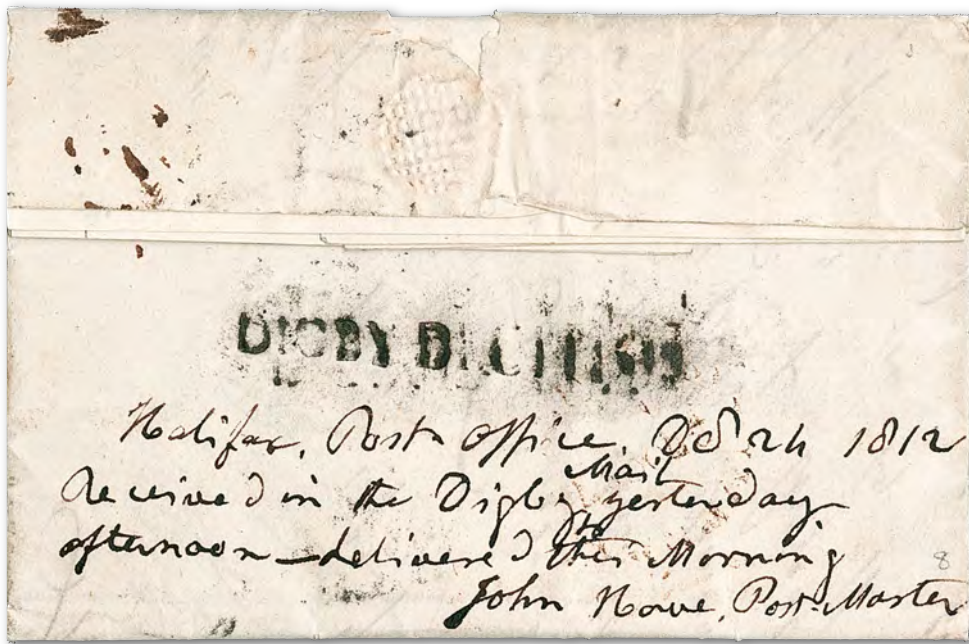 DIGBY
Halifax, Post office, Dec 24 1812
Received in the Digby Mail yesterday
afternoon — delivered this Morning
John Howe, Post-Master
8